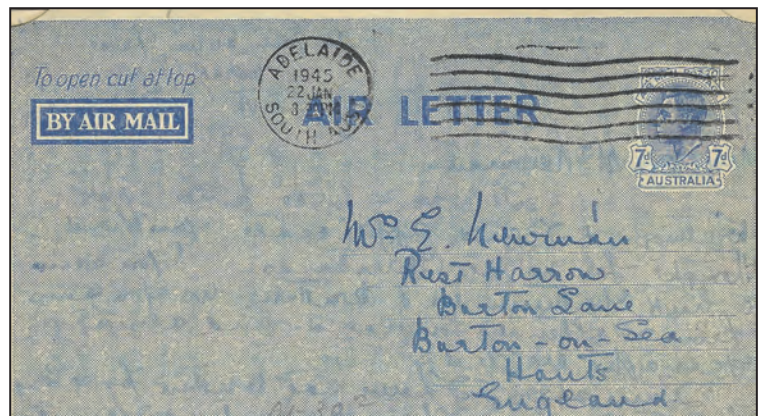 To open cut at top
BY AIR MAIL
ADELAIDE
1945
22 JAN
PM
SOUTH AUS
AIR LETTER
7d 7d
AUSTRALIA
Mrs E. Newman
Rest Harrow
Barton Lane
Barton-on-Sea
Hants
England